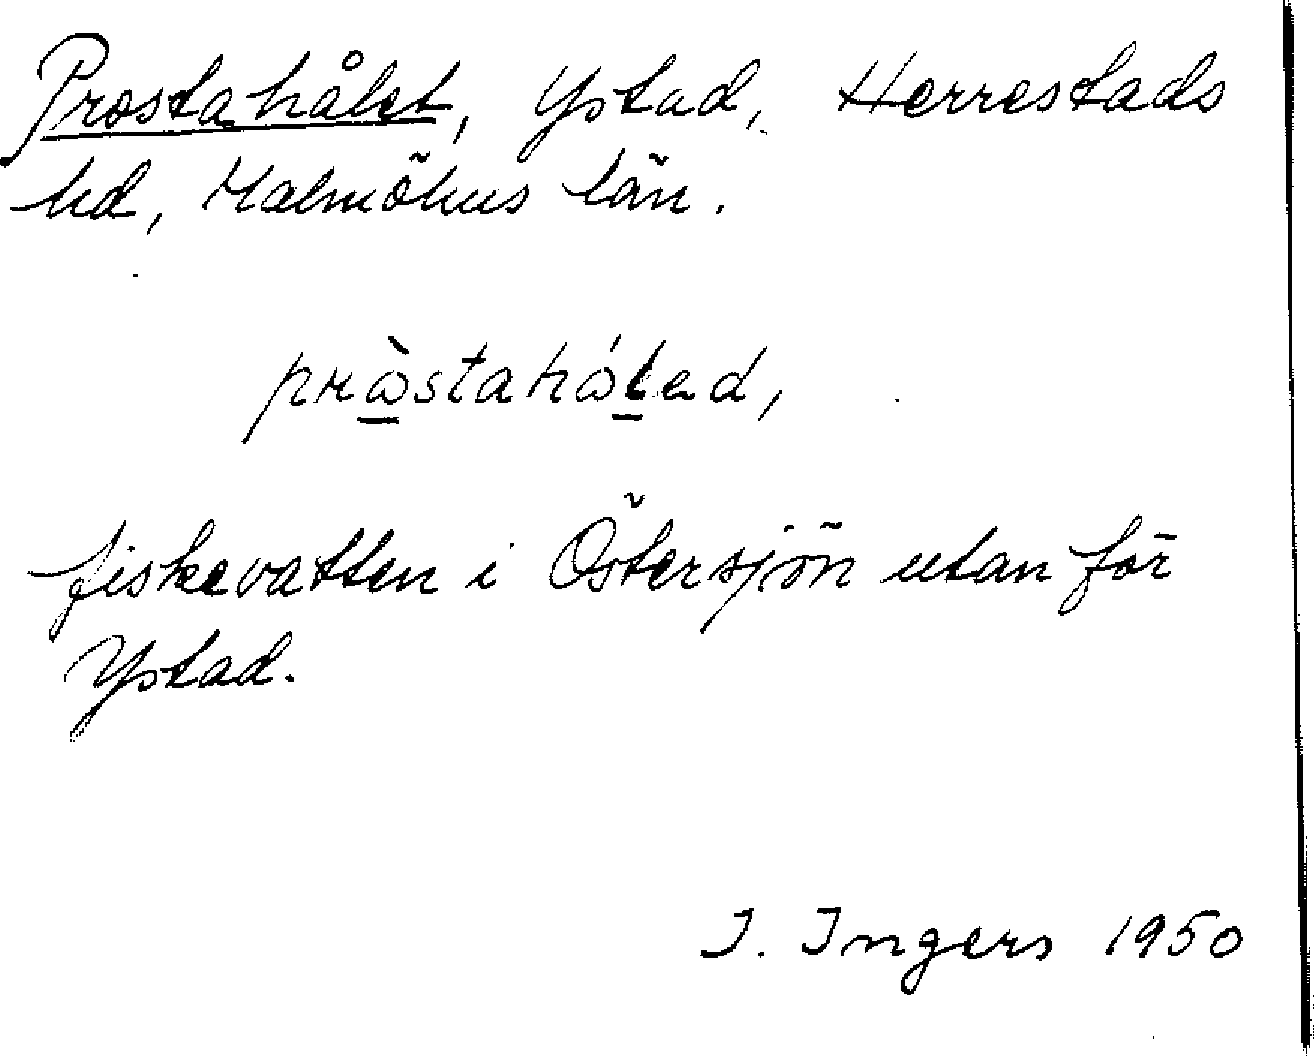 Prostahålet, Ystad, Herrestads
hd, Malmöhus län.
prɷ̀stahɷ́led,
fiskevatten i Östersjön utan för
Ystad.
I. Ingers 1950